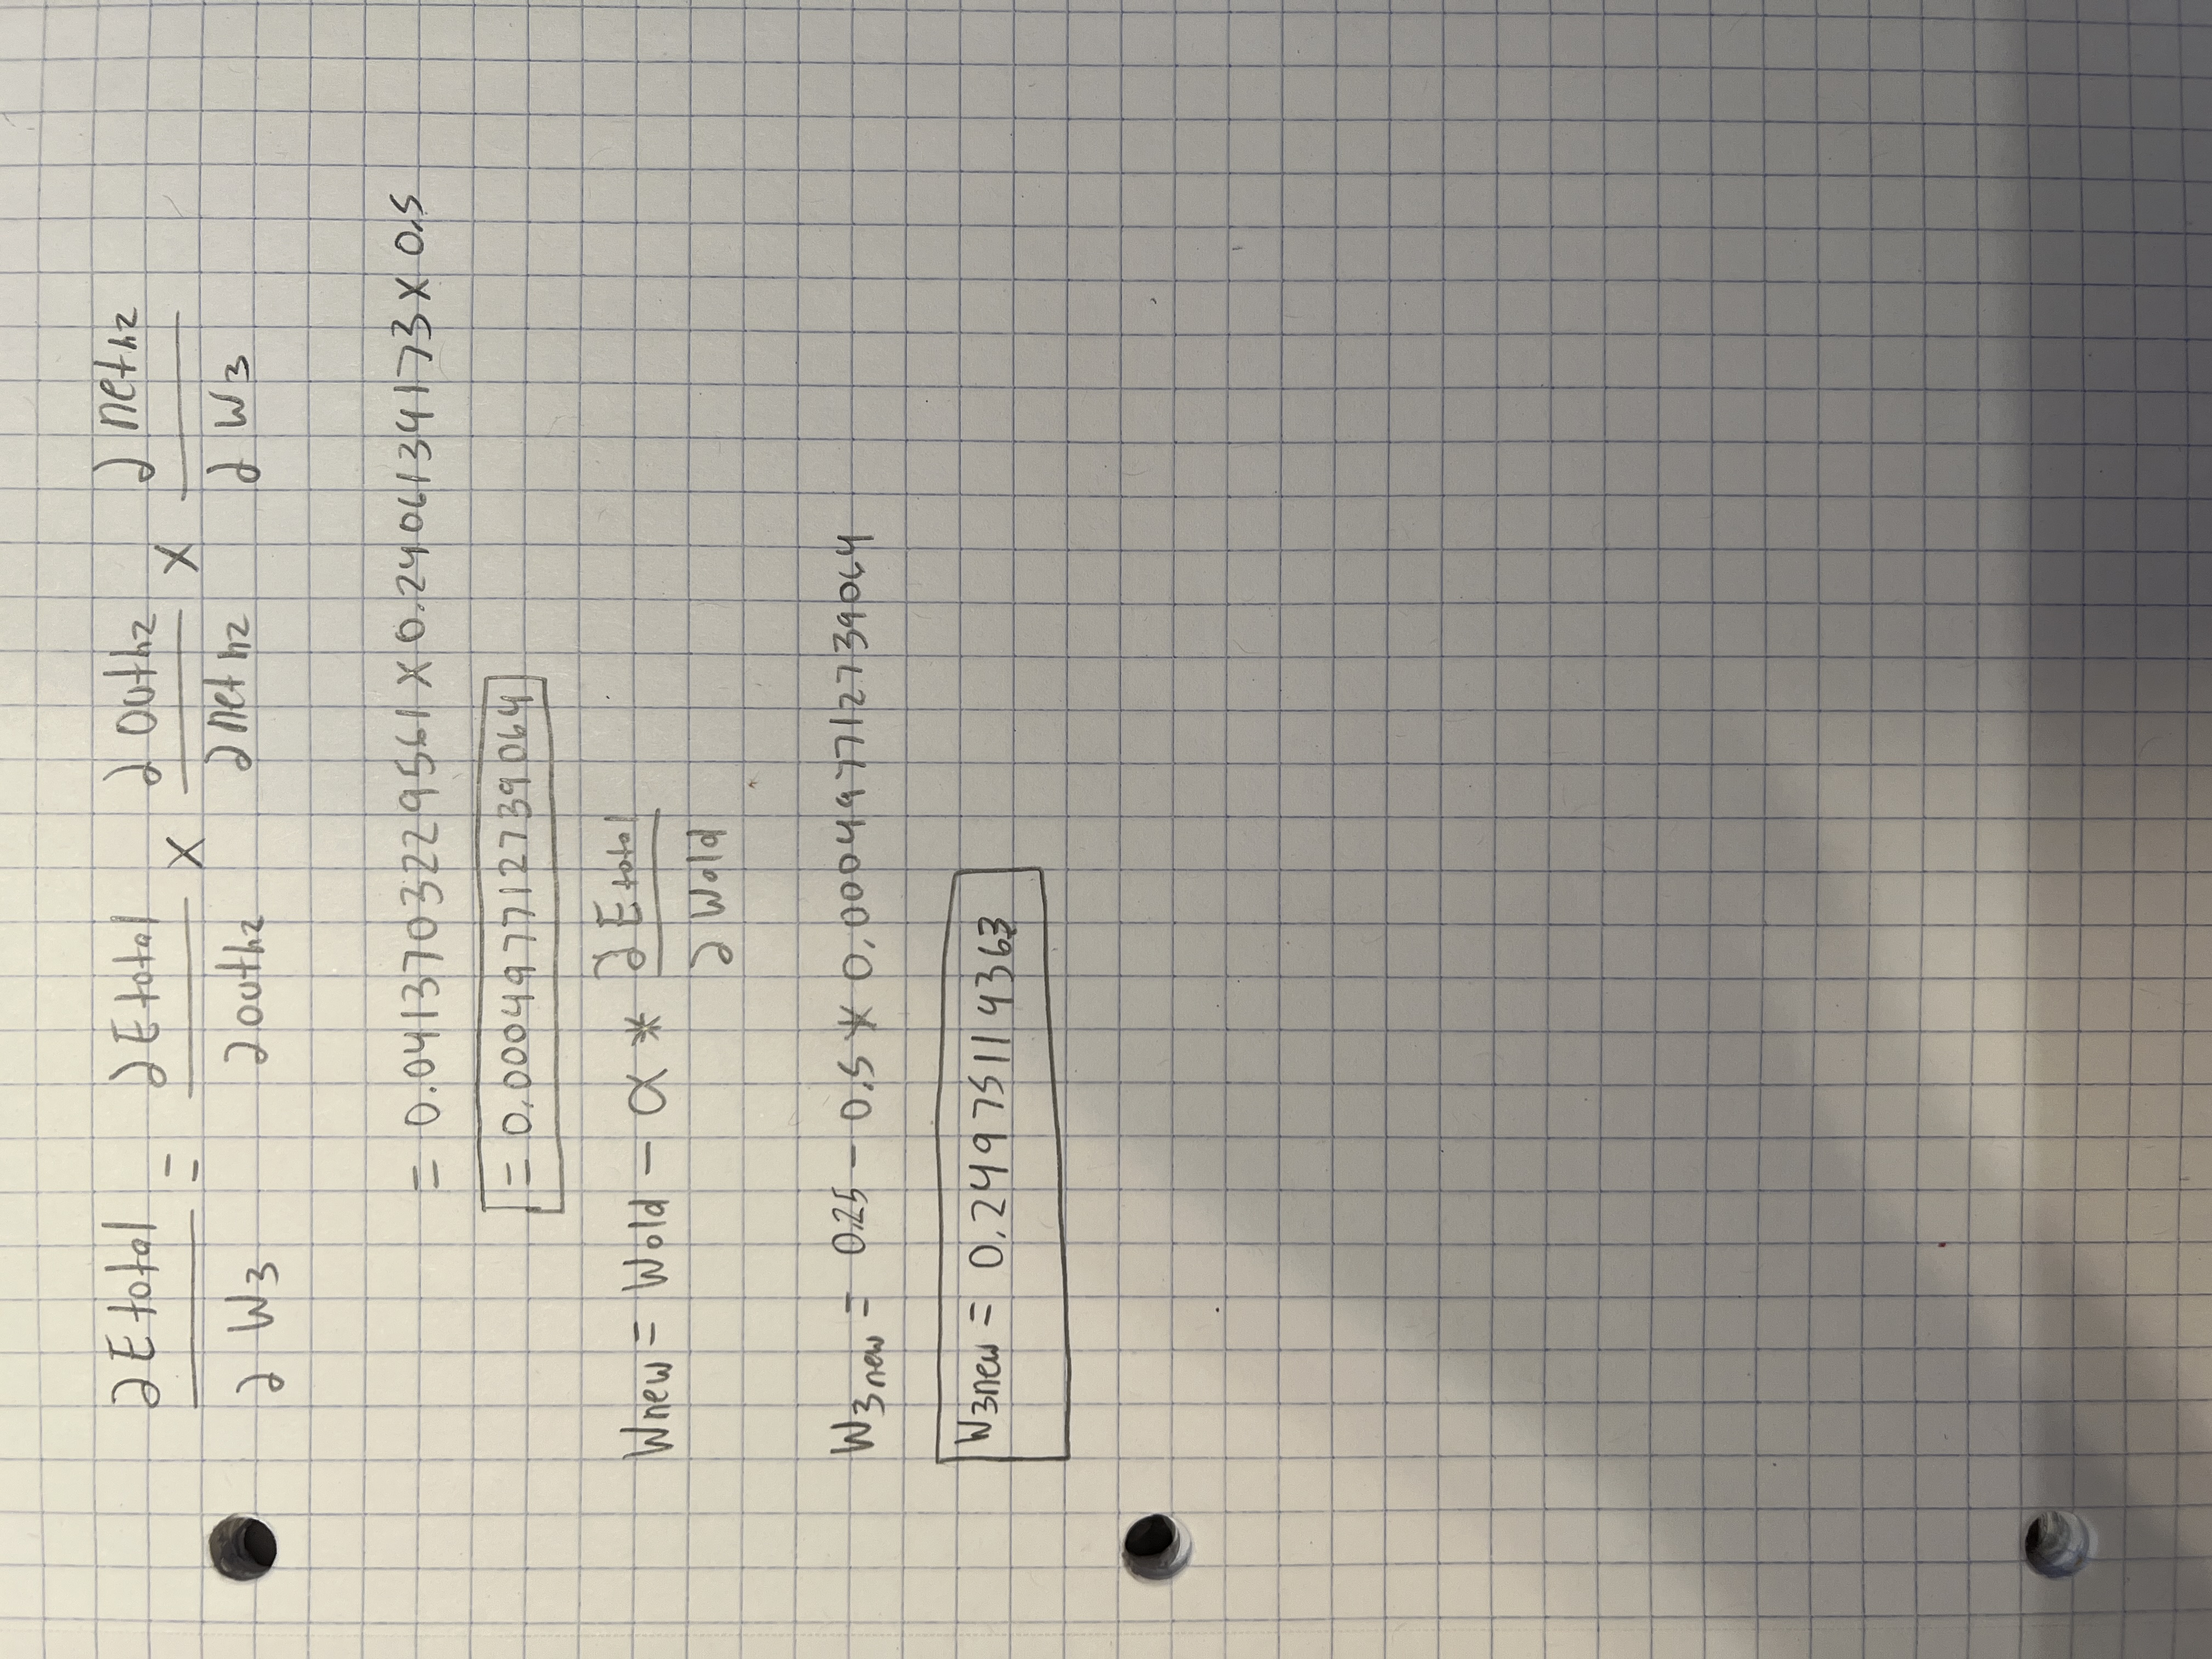 ∂Etotal / ∂W₃ = ∂Etotal / ∂outh₂ × ∂outh₂ / ∂neth₂ × ∂neth₂ / ∂W₃
= 0.0413703229561 × 0.2406134173 × 0.5
= 0.000497712739064
Wnew = Wold - α * ∂Etotal / ∂Wold
W₃new = 0.25 - 0.5 * 0.000497712739064
W₃new = 0.24975114363